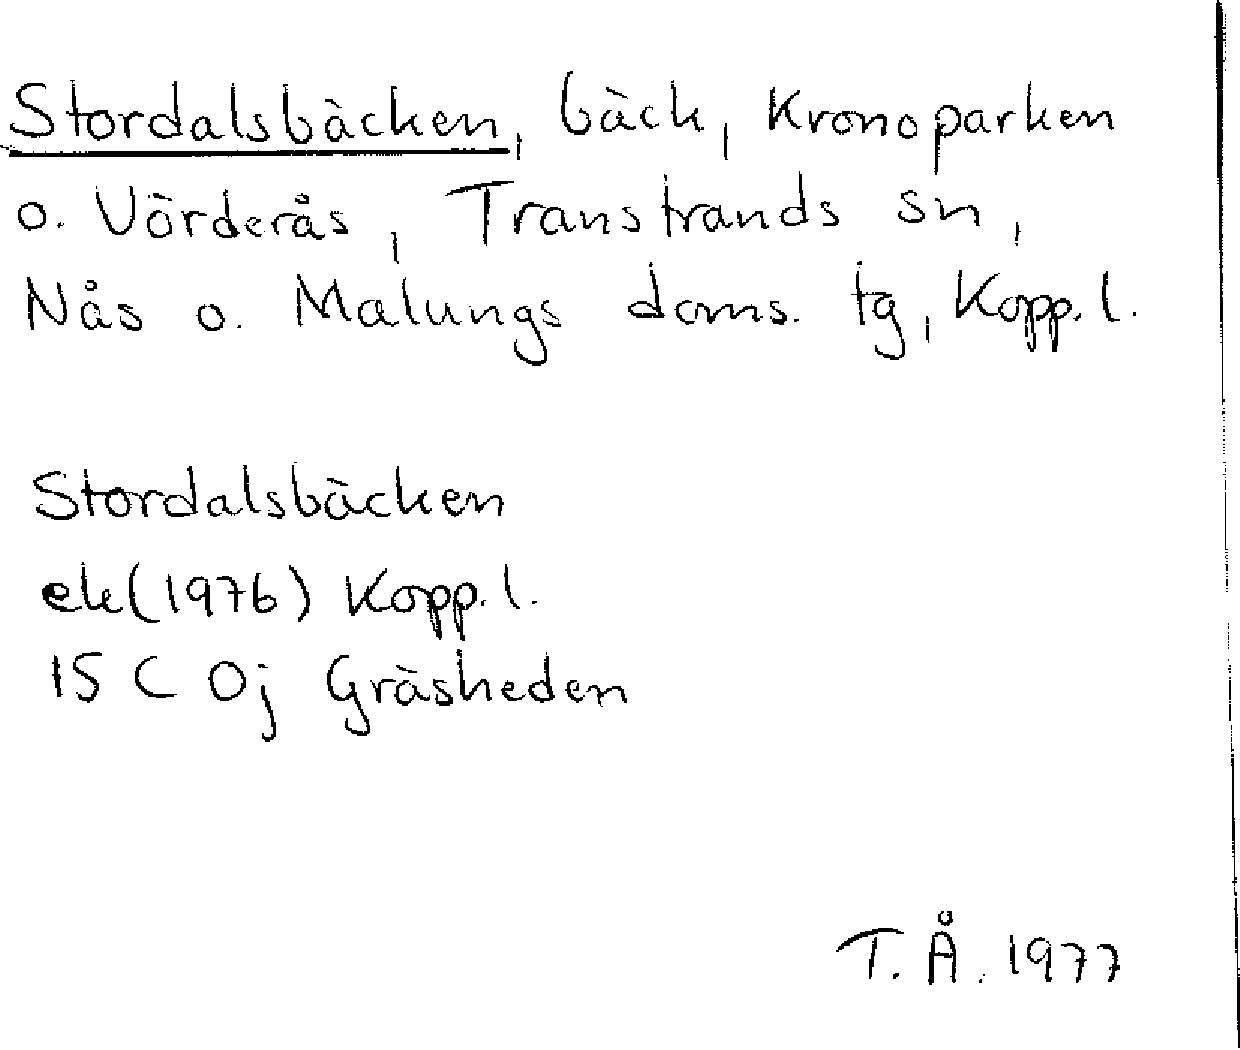 Stordalsbäcken, bäck, Kronoparken
o. Vörderås, Transtrands sn,
Nås o. Malungs doms. tg, Kopp. l.
Stordalsbäcken
ek (1976) Kopp. l.
15 C 0j Gräsheden
T. Å. 1977